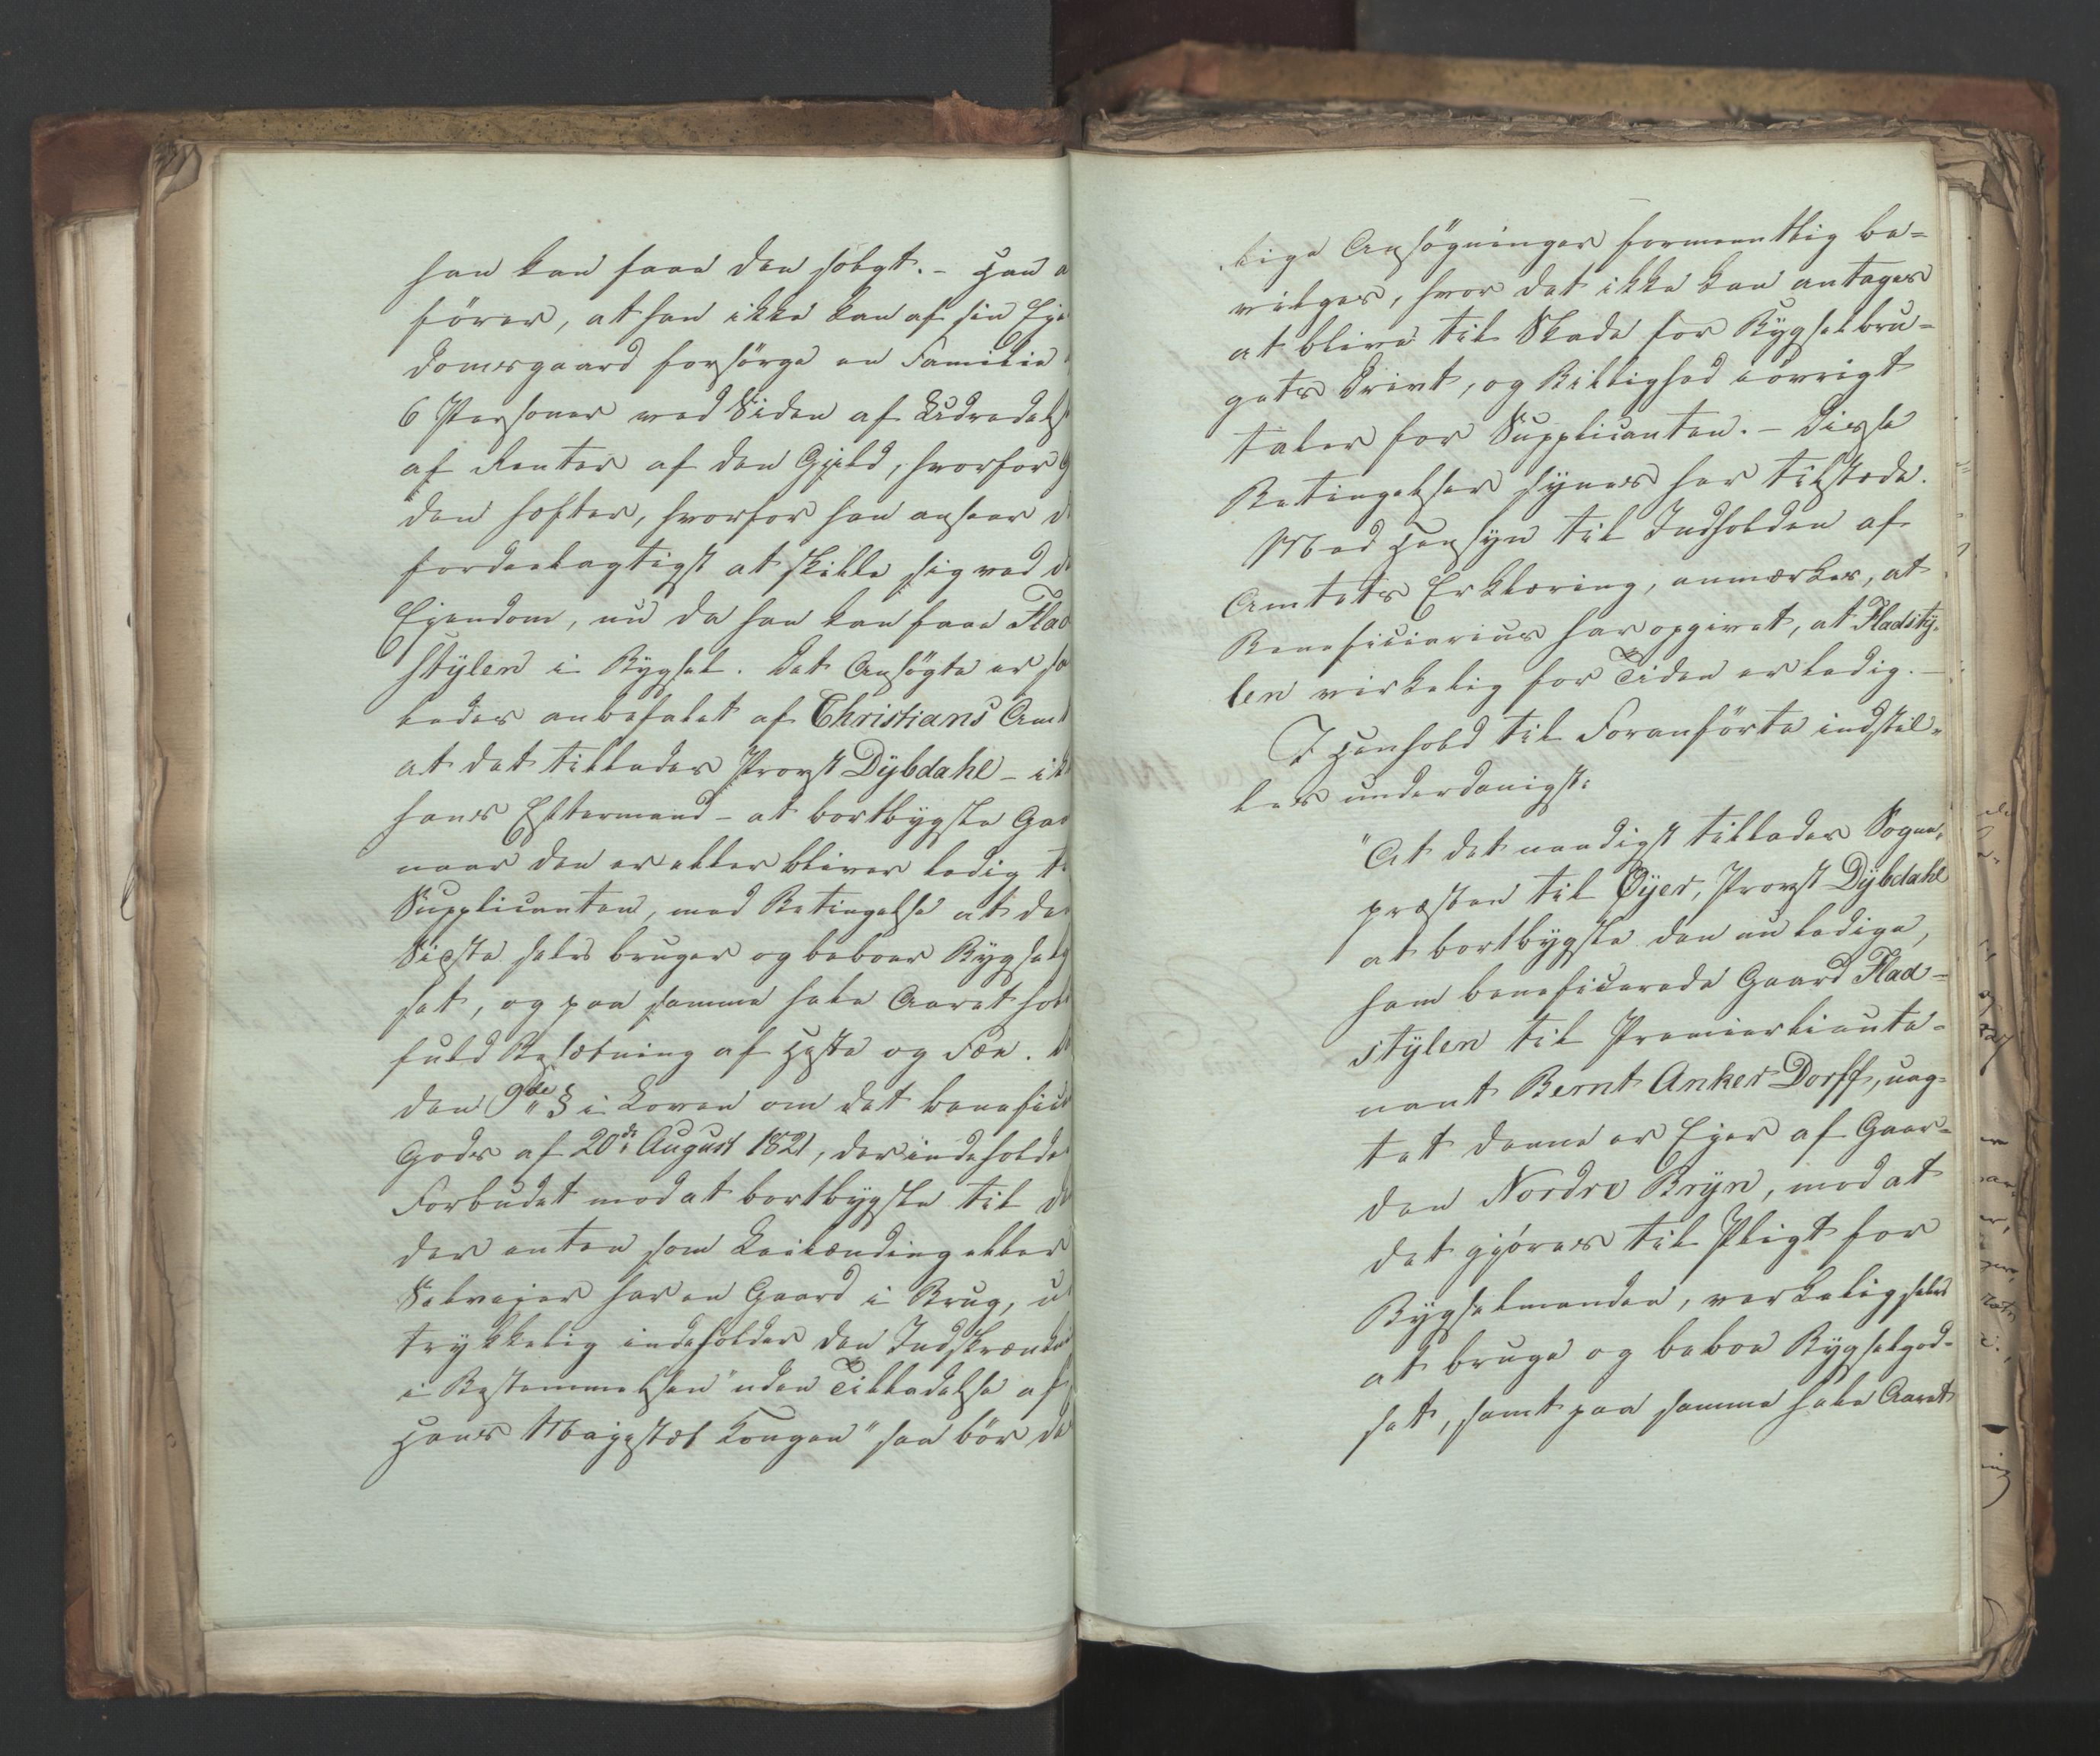 han kan faae den solgt. - Han a
förer, at han ikke kan af sin Eje
domsgaard forsörge en Familie
6 Personer ved Siden af Udredels
af Renter af den Gjeld, hvorfor G
den hæfter, hvorfor han anseer d
fordeelagtigst at skille sig ved d
Ejendom, nu da han kan faae Flad
stylen i Bygsel. Det Ansögte er så
ledes anbefalet af Christians Amt
at det tillades Provst Dybdahl - ik
hans Eftermand - at bortbygsle Gaa
naar den er eller bliver ledig t
Supplicanten, med Betingelse at de
Sidste selv bruger og beboer Bygselg
set, og paa samme hele Aaret hol
fuld Besætning af Heste og Fæe. D
den 9de § i Loven om det benefic
Gods af 20de August 1821, der indeholde
Forbudet mod at bortbygsle til d
der enten som Leilænding eller
Selvejer har en Gaard i Brug, u
trykkelig indeholder den Indskrænkn
i Bestemmelsen "uden Tilladelse af
Hans Majestæt Kongen" saa bör de
lige Ansögninger formeentlig be=
vilges, hvor det ikke kan antages
at blive til Skade for Bygselbru=
gets Drivt, og Billighed iövrigt
taler for Supplicanten. - Disse
Betingelser synes her tilstede.
Med Hensyn til Indholden af
Amtets Erklæring, anmærkes, at
Beneficiarius har opgivet, at Fladsty=
len virkelig for Tiden er ledig. -
I Henhold til Foranförte indstil=
les underdanigst:
"At det naadigst tillades Sogne=
præsten til Öyer, Provst Dybdahl
at bortbygsle den nu ledige,
ham beneficerede Gaard Flad=
stylen til Premierlieute=
nant Bernt Anker Dorff, uag=
tet denne er Ejer af Gaar=
den Nordre Bryn, mod at
det gjöres til Pligt for
Bygselmanden, verkelig selv
at bruge og beboe Bygselgod=
set, samt paa samme hele Aaret